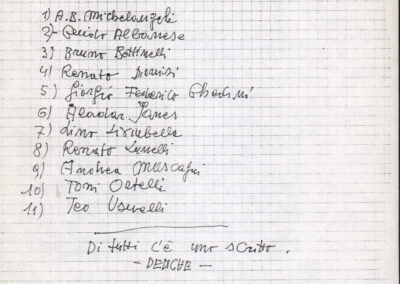 1) A.B. Michelangeli
2) Guido Albanese
3) Bruno Bettinelli
4) Renato Dionisi
5) Giorgio Federico Ghedini
6) Aladar Janes
7) Lino Liviabella
8) Renato Lunelli
9) Andrea Mascagni
10) Toni Ortelli
11) Teo Usuelli
Di tutti c'è uno scritto.
- DEUCHE -